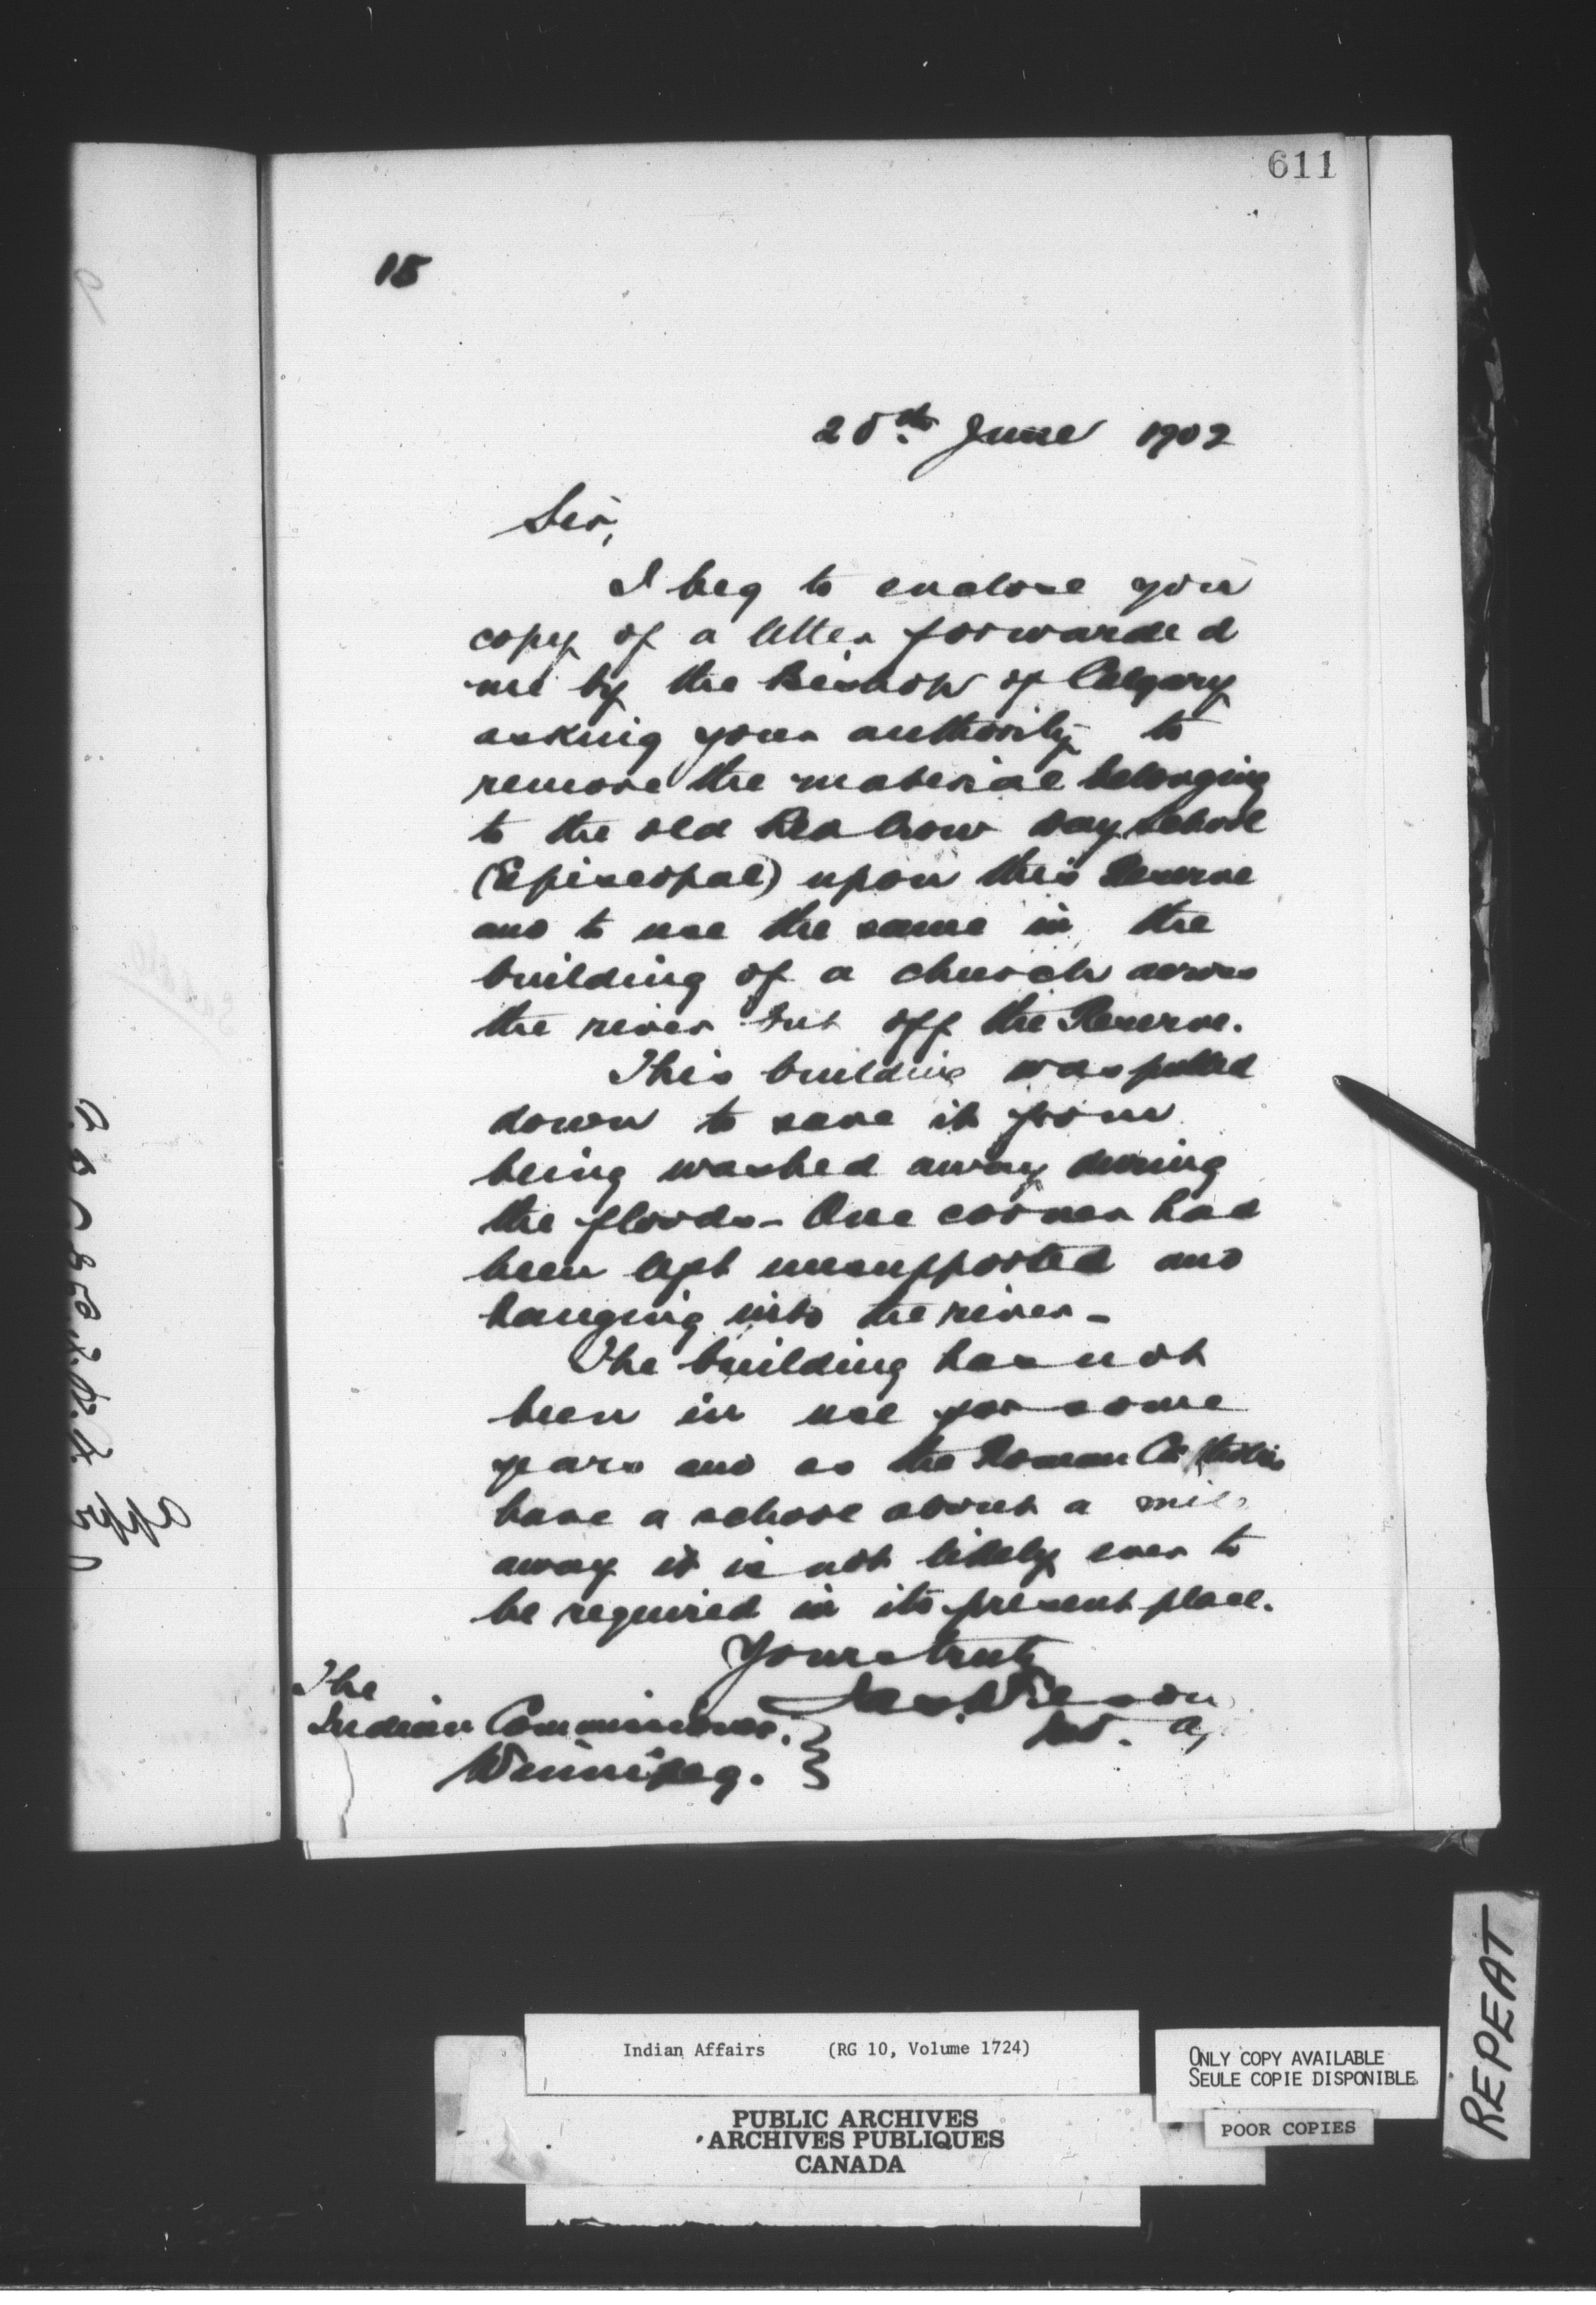 611
15
June 1902
Sir,
I beg to enclose you
copy of a letter forwarded
me by the Bishop of Calgary
asking your authority to
remove the material belonging
to the old Red Crow Day School
(Episcopal) upon this Reserve
and to use the same in the
building of a church across
the river but off the Reserve.
This building was pulled
down to save it from
being washed away during
the floods - One corner had
been left unsupported and
hanging into the river -
The building has not
been in use for some
years and as the Roman Catholics
have a school about a mile
away it is not likely ever to
be required in its present place.
Yours truly
Jas. Wilson
Ind. Ag
The
Indian Commissioner.
Winnipeg.
Indian Affairs (RG 10, Volume 1724)
PUBLIC ARCHIVES
ARCHIVES PUBLIQUES
CANADA
ONLY COPY AVAILABLE
SEULE COPIE DISPONIBLE
POOR COPIES
REPEAT